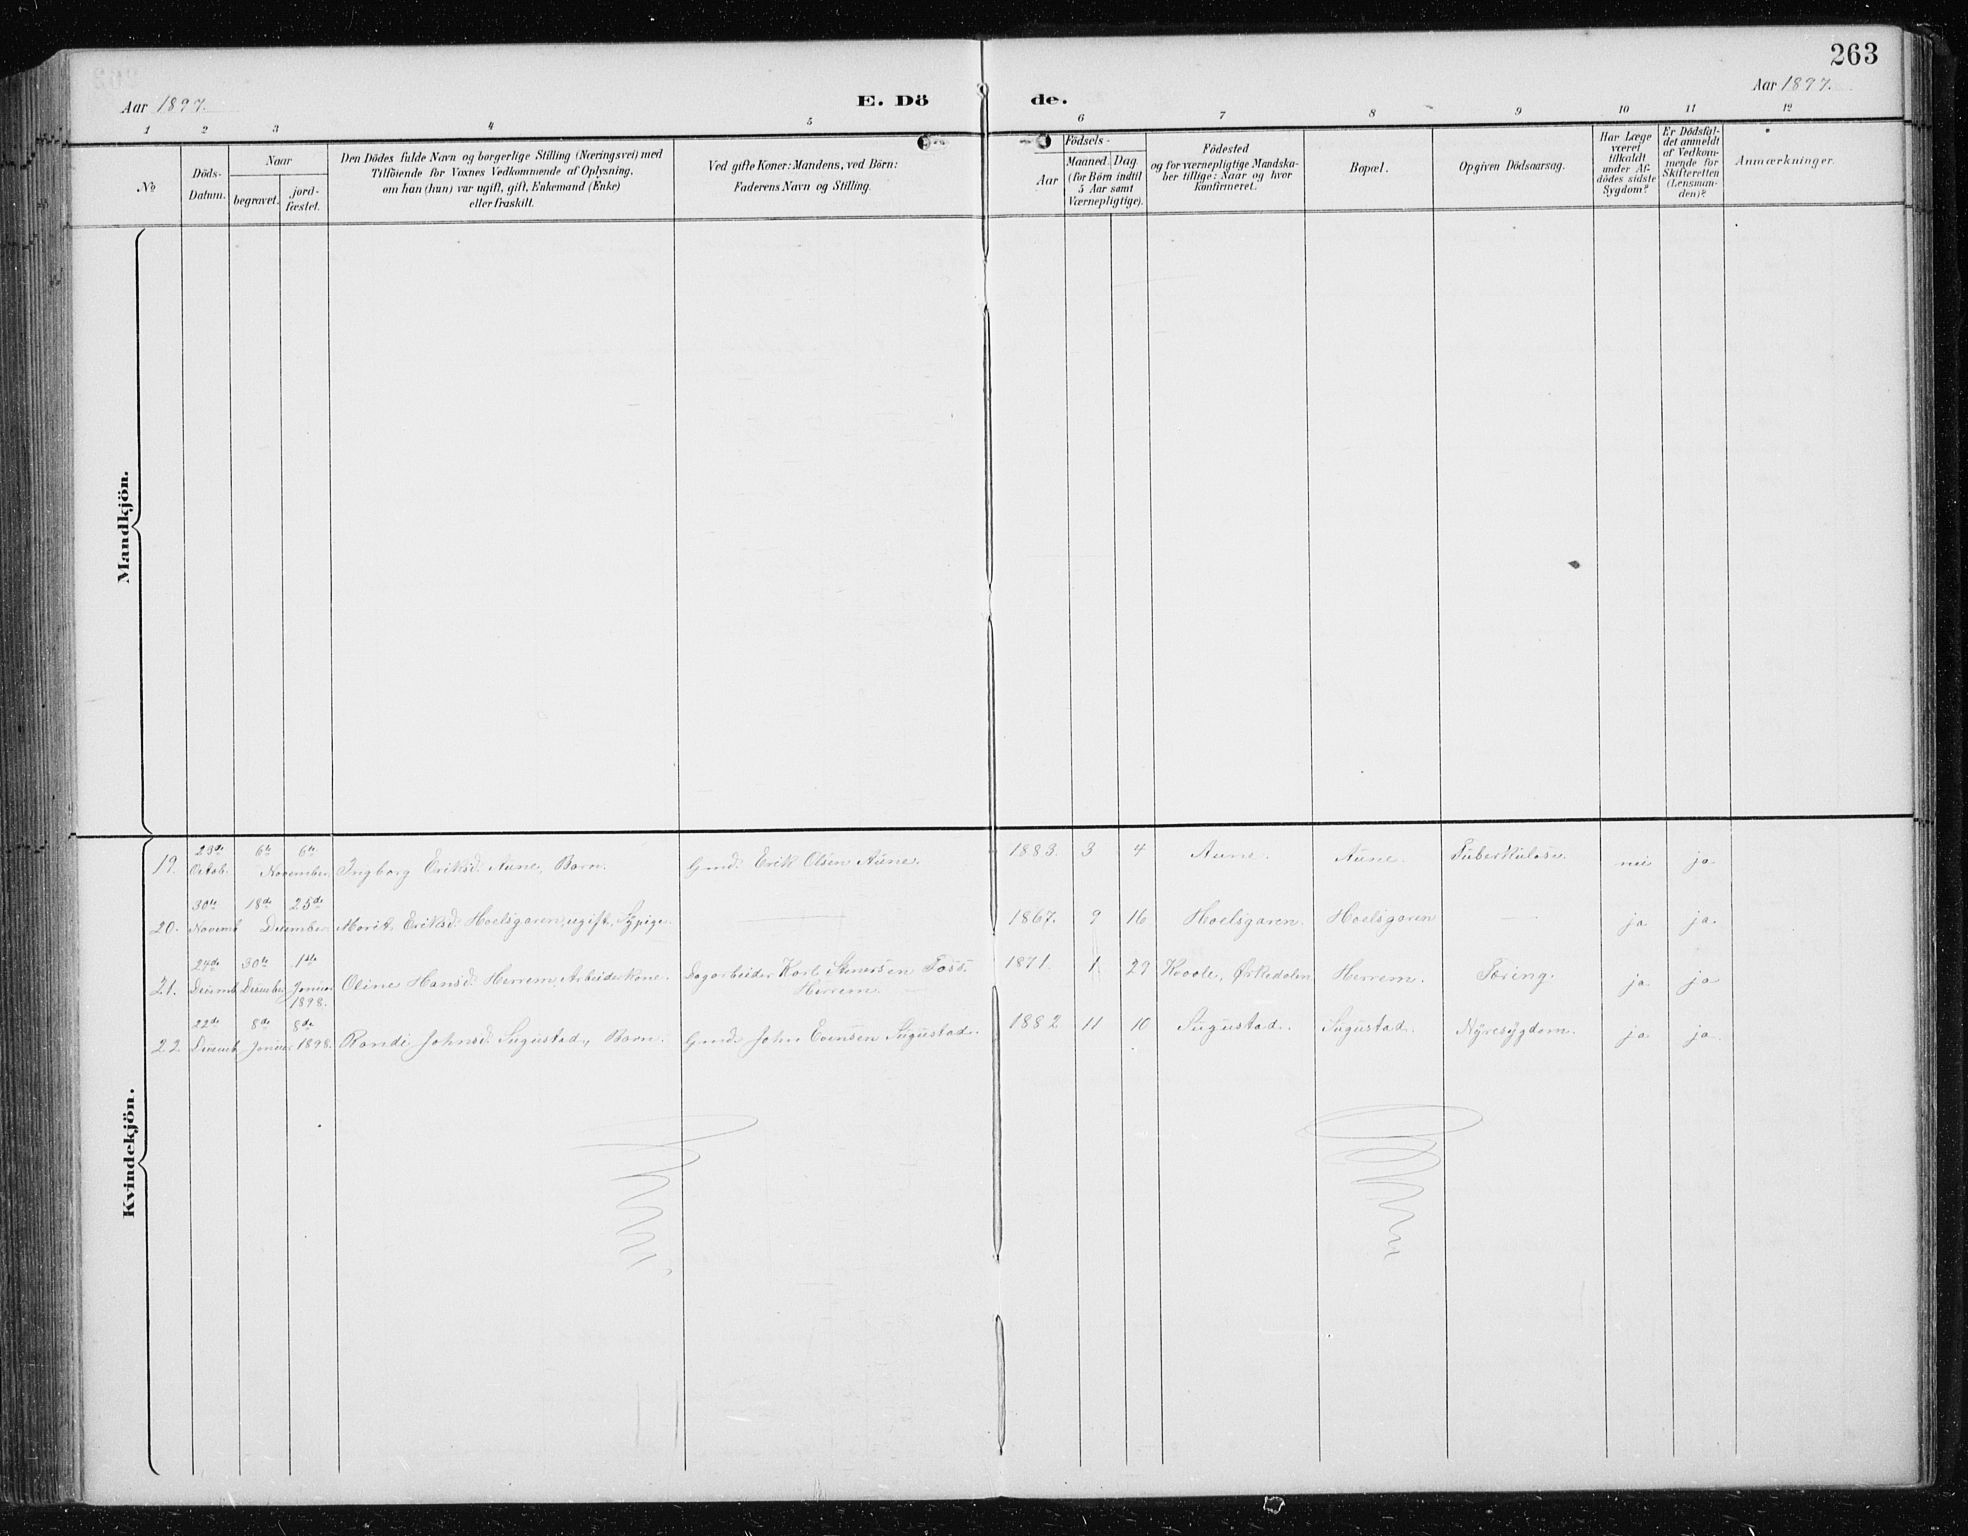 263
Aar 1897.
E. Dö de.
Aar 1897.
1 2 3 4 5 6 7 8 9 10 11 12
No
Döds-
Datum.
Naar
begravet.
jord-
fæstet.
Den Dödes fulde Navn og borgerlige Stilling (Næringsvei) med
Tilföiende for Voxnes Vedkommende af Oplysning,
om han (hun) var ugift, gift, Enkemand (Enke)
eller fraskilt.
Ved gifte Koner: Mandens, ved Börn:
Faderens Navn og Stilling.
Födsels-
Aar
Maaned. Dag
(for Börn indtil
5 Aar samt
Værnepligtige).
Födested
og for værnepligtige Mandska-
ber tillige: Naar og hvor
konfirmeret.
Bopæl.
Opgiven Dödsaarsag.
Har Læge
været
tilkaldt
under Af-
dödes sidste
Sygdom?
Er Dödsfal-
det anmeldt
af Vedkom-
mende for
Skifteretten
(Lensman-
den)?
Anmærkninger.
Mandkjön.
Kvindekjön.
19. 23de Octob. 6te 6te November. Ingborg Eriksd. Aune, Barn. Gmd. Erik Olsen Aune. 1883. 3 4 Aune. Aune. Tuberkulose. nei ja
20. 30te Novemb 18de 25de December. Marit Eriksd. Hoelsgaren, ugift, Sypige. 1867. 9 16 Hoelsgaren. Hoelsgaren ja ja.
21. 24de Decemb. 30te Decembr. 1ste Januar 1898. Oline Hansd. Herrem, Arbeiderkone. Dagarbeider Karl Stenersen Foss. Herrem. 1871. 1. 29 Kvaale, Ørkedalen Herrem. Tæring. ja ja
22. 22de Decemb. 8de 8de Januar 1898. Randi Johnsd. Sugustad, Barn. Gmd. John Evensen Sugustad. 1882 11 10 Sugustad. Sugustad. Nyresygdom. ja ja.